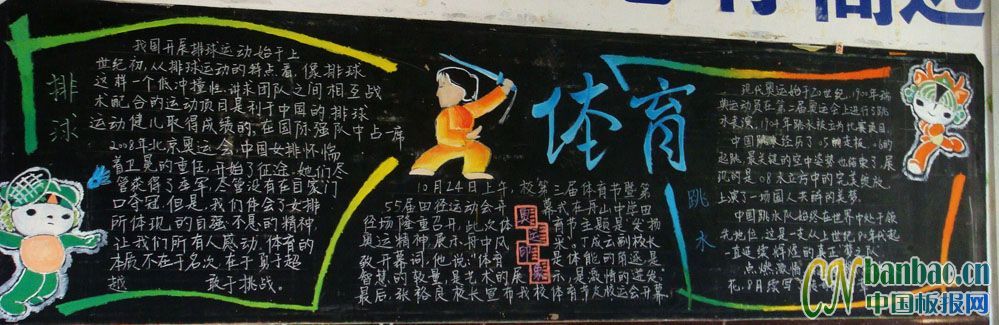 排球
我国开展排球运动始于上
世纪初,从排球运动的特点看,像排球
这样一个低冲撞性,讲求团队之间相互战
术配合的运动项目是利于中国的排球
运动健儿取得成绩的,在国际强队中占一席
2008年北京奥运会,中国女排怀惴
着卫冕的重任,开始了征途,她们尽
管获得了季军,尽管没有在自家门
口夺冠,但是,我们体会了女排
所体现的自强不息的精神,
让我们所有人感动,体育的
本质不在于名次,在于勇于超
越 敢于挑战。
体育
10月24日上午,校第三届体育节暨第
55届田径运动会开幕式在舟山中学田
径场隆重召开,此次体育节主题是发扬
奥运精神,展示舟中风采,丁成云副校长
致开幕词,他说:"体育是体能的角逐是
智慧的较量,是艺术的展示,是激情的迸发。
最后,张裕良校长宣布我校体育节及校运会开幕!
奥运印象
跳水
现代奥运始于20世纪,1900年瑞
奥运动员在第二届奥运会上进行了跳
水表演,1904年跳水被立为比赛项目,
的起跳,最关键的空中姿势也结束了,展
现的是08水立方中的完美绽放,
上演了一场国人夫群的美梦。
中国跳水队始终在世界中处于领
先地位,这是一支从上世纪80年代起
一直延续辉煌的真正梦之队。
点燃激情
花,8月续写
CN banbao.cn
中国板报网